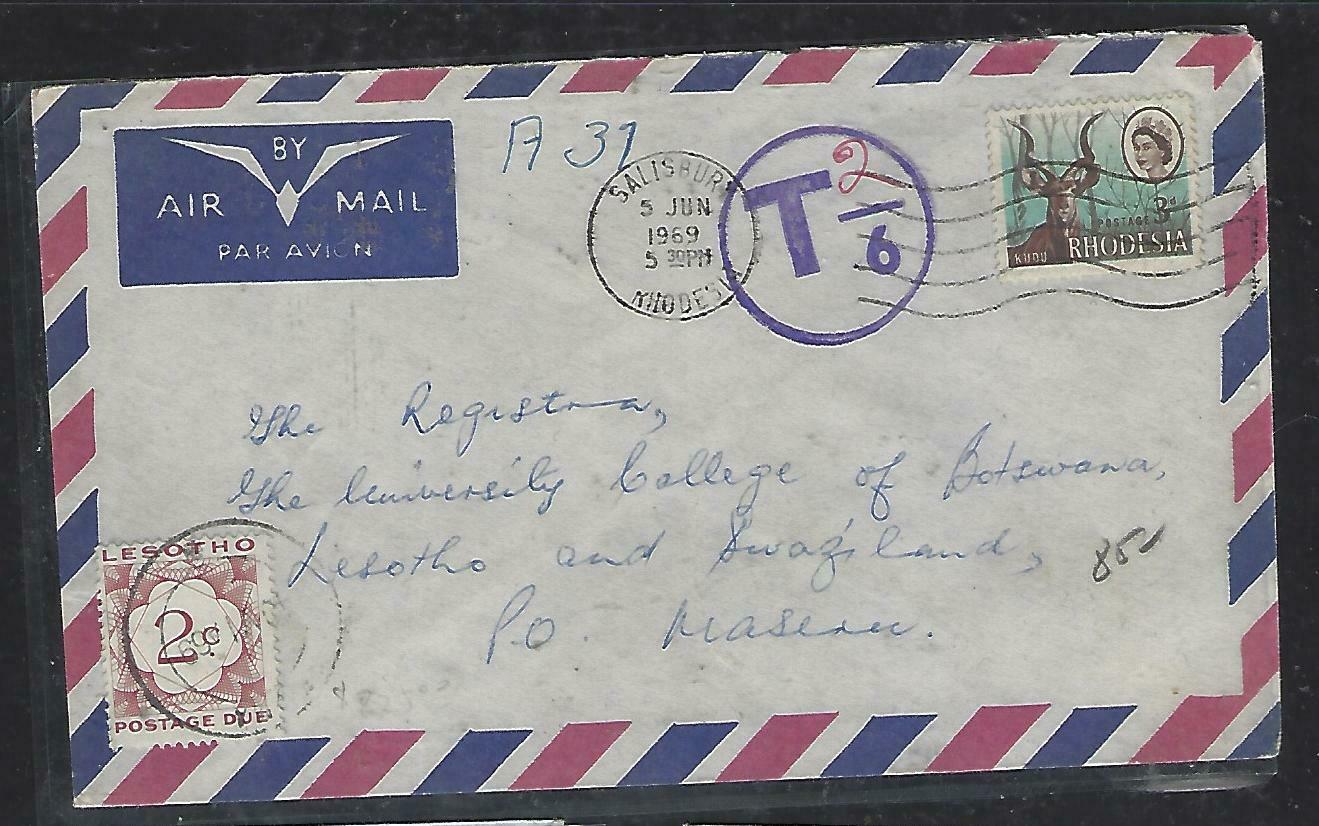 BY
AIR MAIL
PAR AVION
A 39
SALISBURY
5 JUN
1969
5 30PM
RHODESIA
T 2/6
POSTAGE 3d
KUDU RHODESIA
The Registra,
The University College of Botswana,
Lesotho and Swaziland,
P.O. Maseru.
85
LESOTHO
2c
POSTAGE DUE